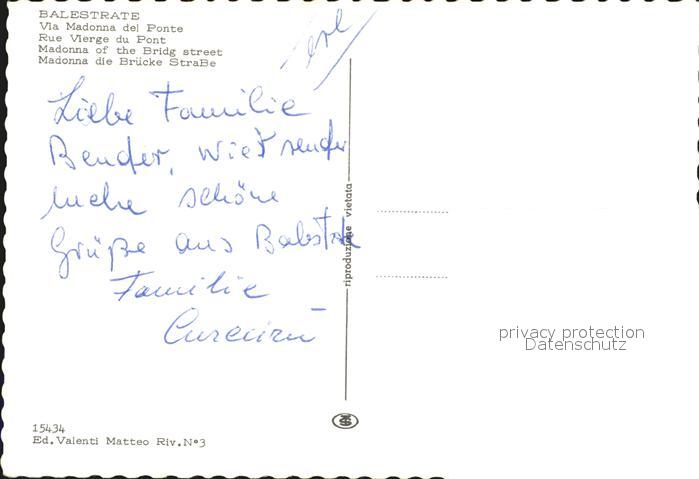 BALESTRATE
Via Madonna del Ponte
Rue Vierge du Pont
Madonna of the Bridg street
Madonna die Brücke StraBe
Liebe Familie
Bender,
schöne
Grüße aus
Familie
riproduzione vietata
privacy protection
Datenschutz
15434
Ed. Valenti Matteo Riv. N°3